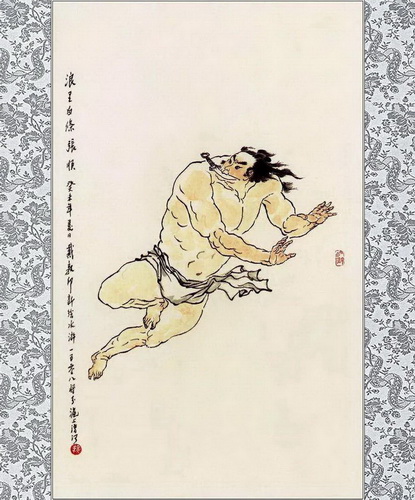 浪里白條張順 癸未年夏日戴敦邦新繪水滸一百零八將於滬上